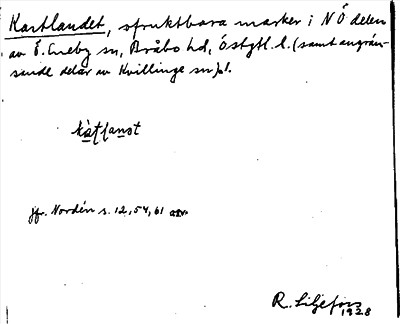 Kartlandet, ofruktbara marker i NÖ delen
av Ö. Eneby sn, Bråbo hd, Östgtl. l. (samt angrän-
sande delar av Kvillinge sn)
jfr. Nordén s. 12, 54, 61
R. Liljefors
1928